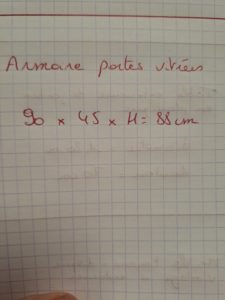 Armoire portes vitrées
90 x 45 x H = 88 cm